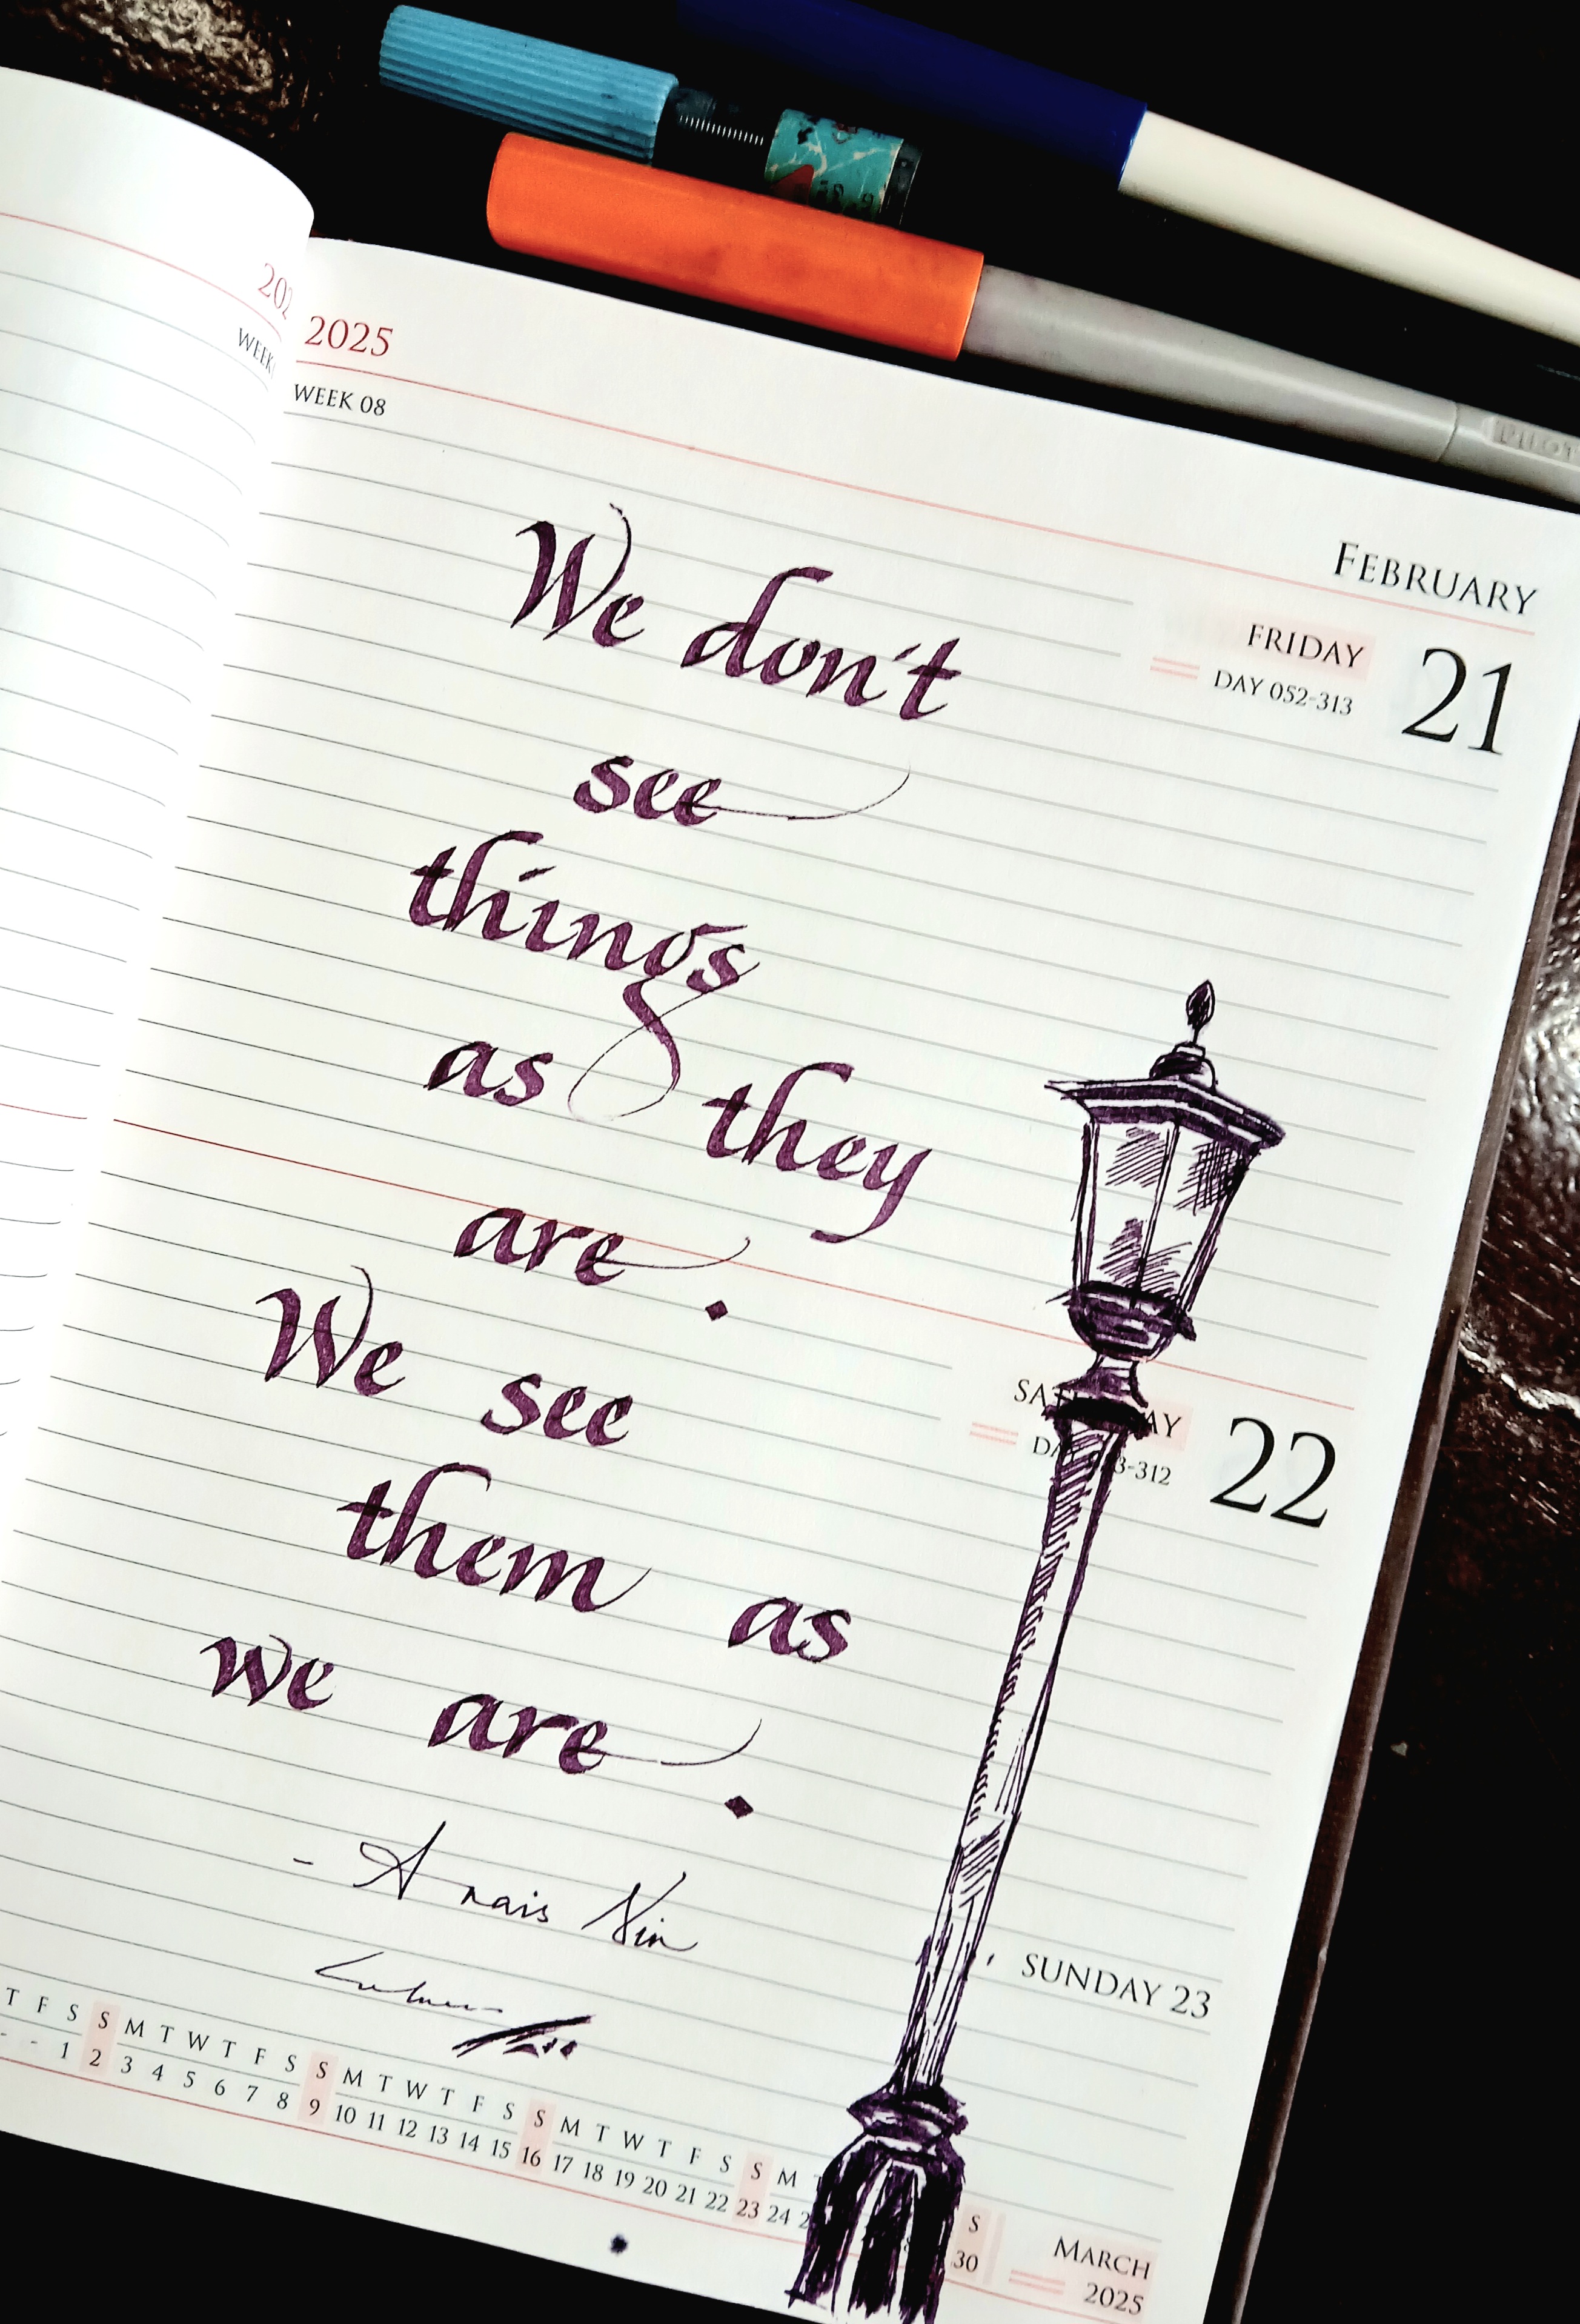 202
WEEK
2025
WEEK 08
PILOT
FEBRUARY
FRIDAY 21
DAY 052-313
We don't
see
things
as they
are.
We see
them as
we are.
- Anais Nin
SATURDAY 22
DAY 053-312
SUNDAY 23
T F S S M T W T F S S M T W T F S S M T W T F S S M S
- - 1 2 3 4 5 6 7 8 9 10 11 12 13 14 15 16 17 18 19 20 21 22 23 24 2 30
MARCH
2025